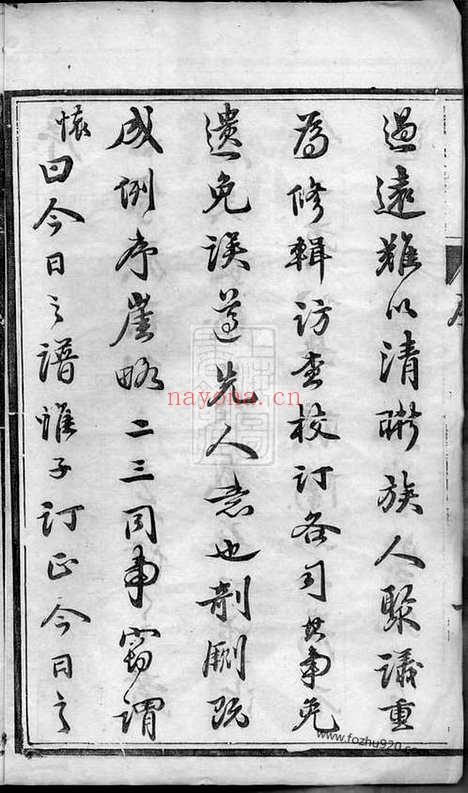 過遠難以清晰族人聚議重
為修輯訪查校訂各司其事免
遺免誤遵先人意也剞劂既
成例序崖略二三同事竊謂
懷曰今日之譜惟子訂正今日之
nayona.cn
www.fozhu920.com